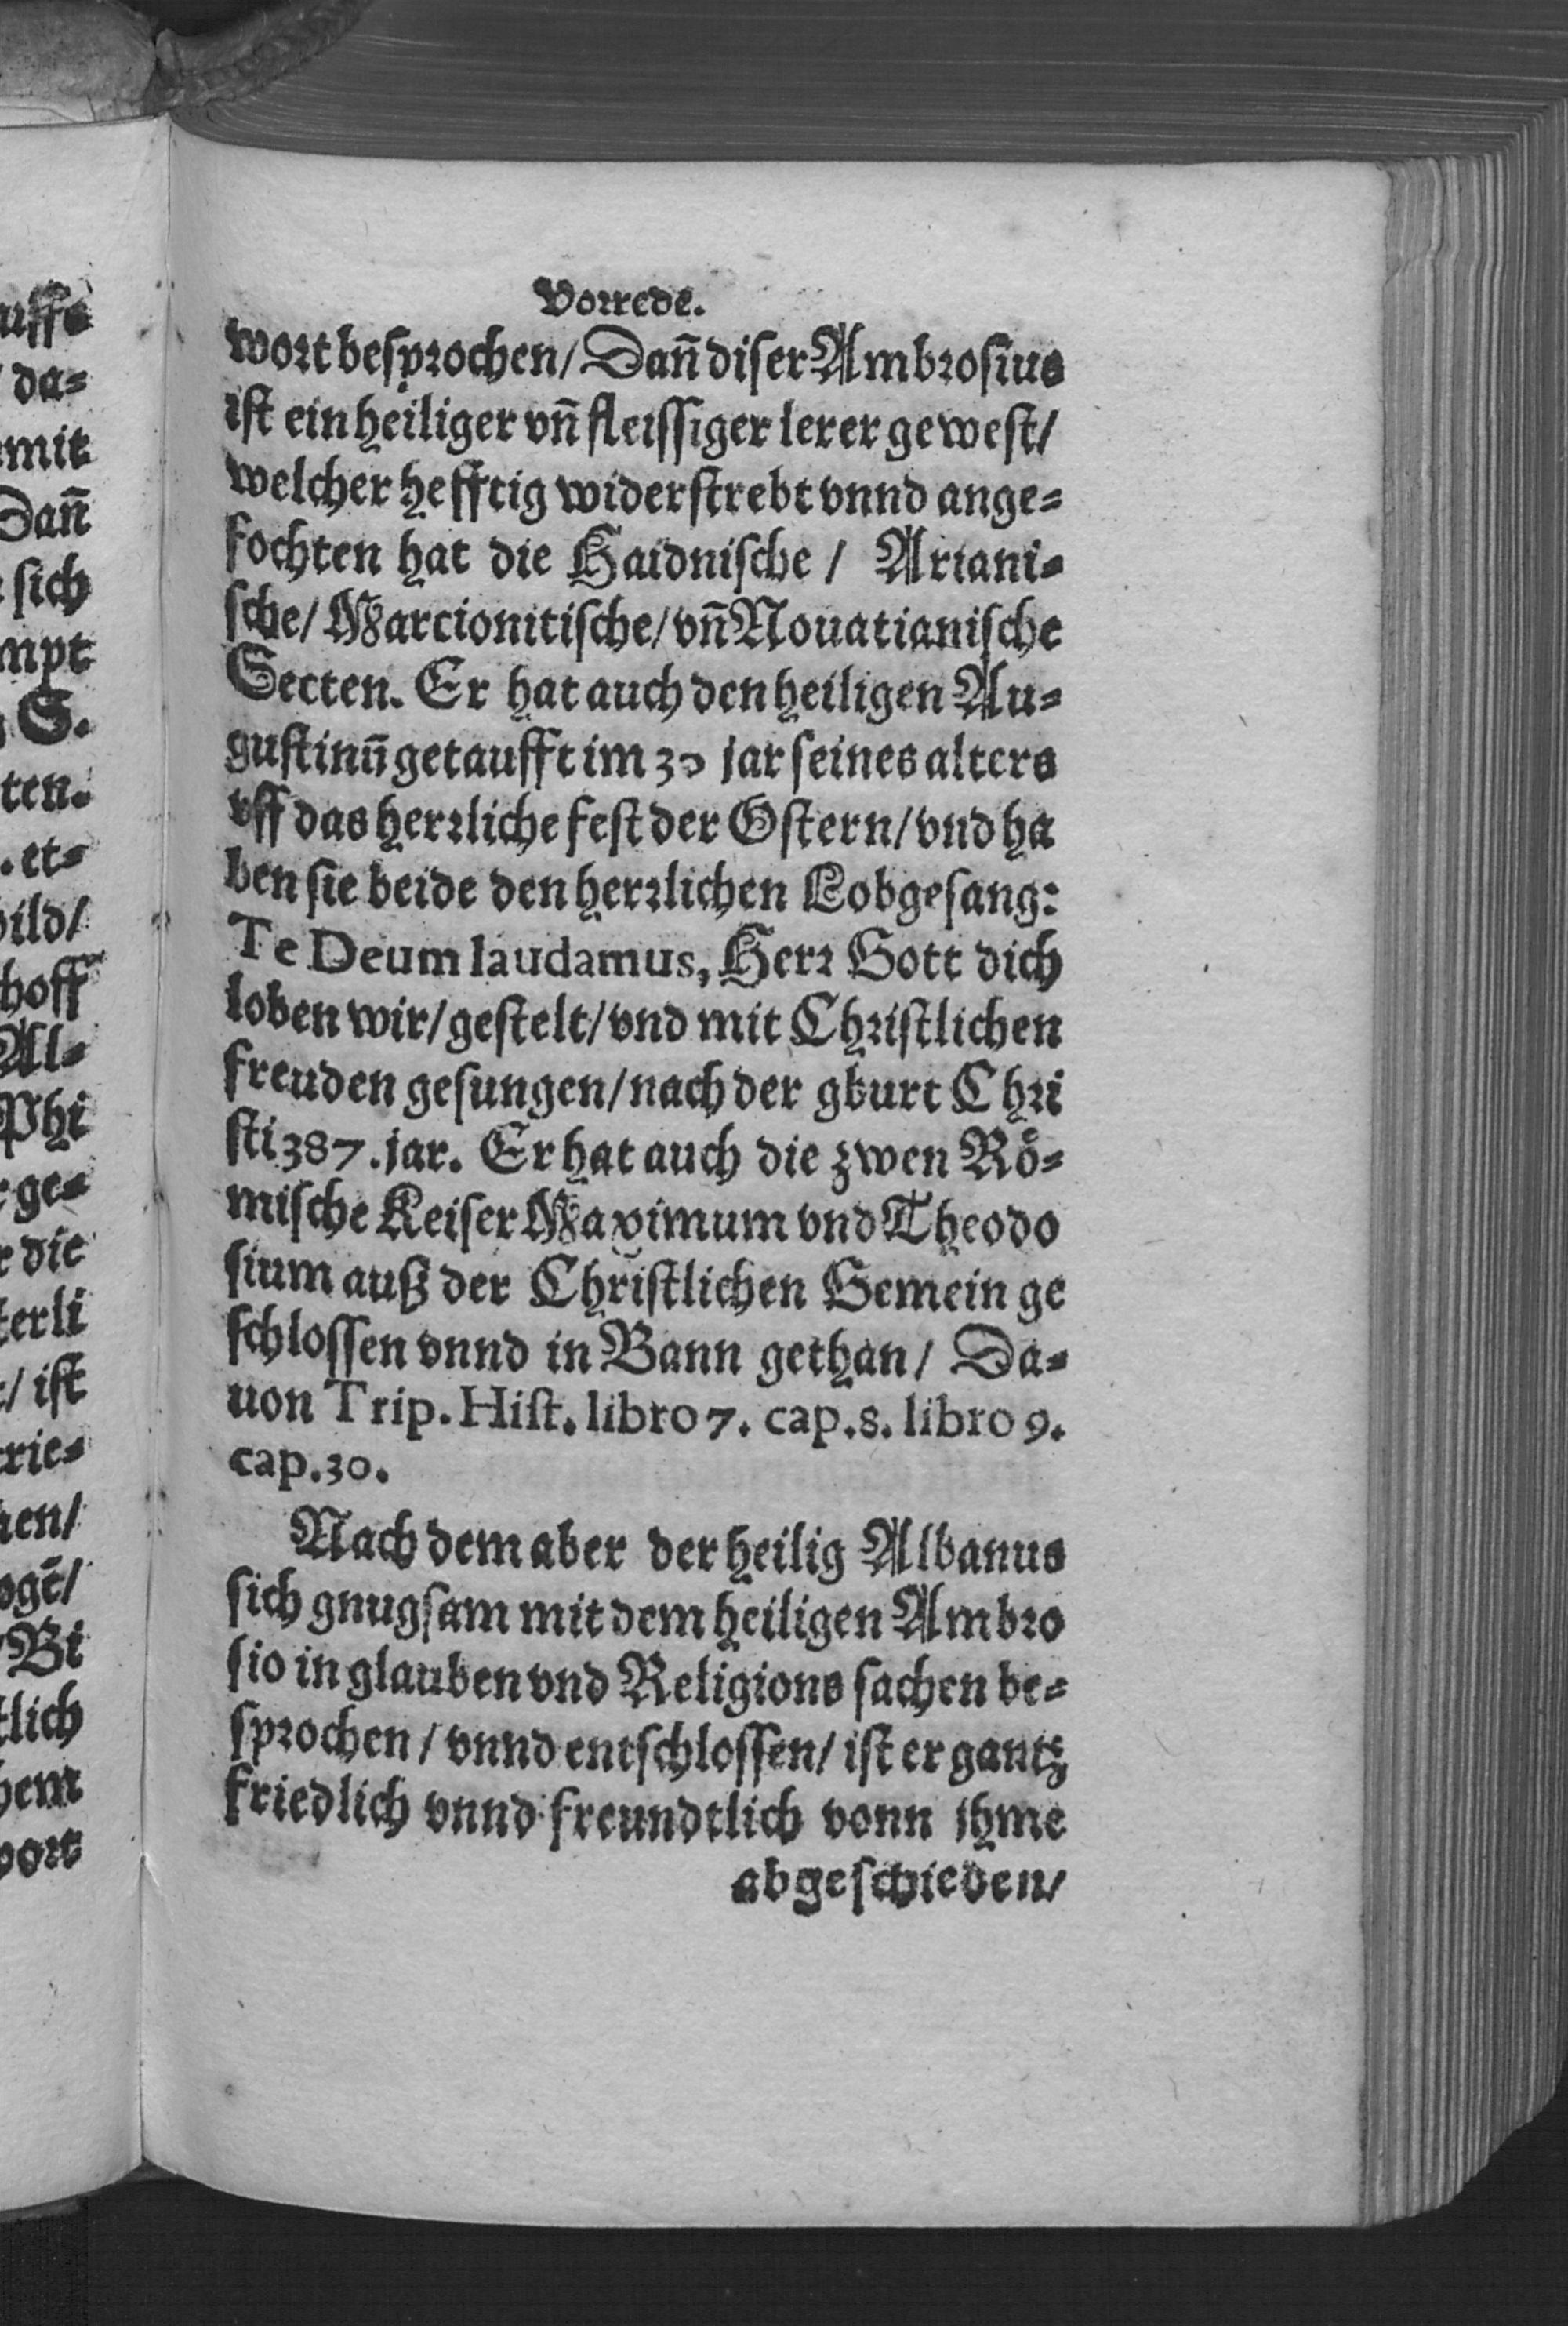 Vorrede.
wort besprochen/ Dañ diser Ambrosius
ist ein heiliger vñ fleissiger lerer gewest/
welcher hefftig widerstrebt vnnd ange-
fochten hat die Haidnische / Ariani-
sche/ Marcionitische/ vñ Nouatianische
Secten. Er hat auch den heiligen Au-
gustinū getaufft im 30 jar seines alters
vff das herrliche fest der Ostern/ vnd ha
ben sie beide den herrlichen Lobgesang:
Te Deum laudamus, Herr Gott dich
loben wir/ gestelt/ vnd mit Christlichen
freuden gesungen/ nach der gburt Chri
sti 387. jar. Er hat auch die zwen Roͤ-
mische Keiser Maximum vnd Theodo
sium auß der Christlichen Gemein ge
schlossen vnnd in Bann gethan/ Da-
uon Trip. Hist. libro 7. cap. 8. libro 9.
cap. 30.
Nach dem aber der heilig Albanus
sich gnugsam mit dem heiligen Ambro
sio in glauben vnd Religions sachen be-
sprochen/ vnnd entschlossen/ ist er gantz
friedlich vnnd freundtlich vonn jhme
abgeschieden/